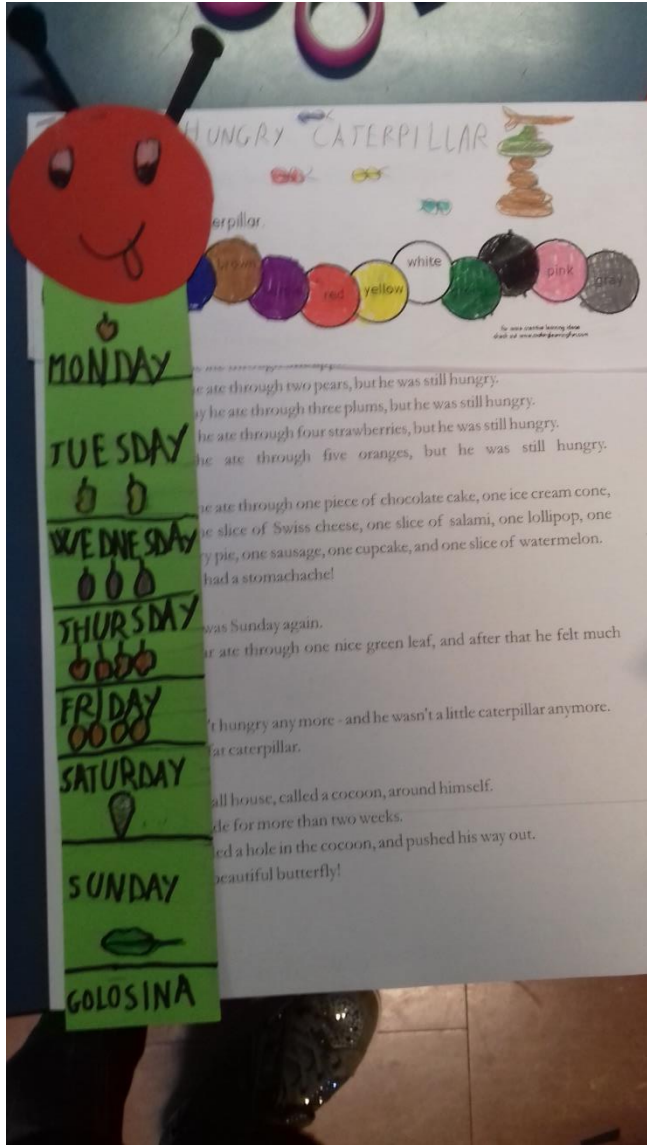 HUNGRY CATERPILLAR
erpillar.
brown
red
yellow
white
pink
gray
For more creative learning ideas
MONDAY
TUESDAY
WEDNESDAY
THURSDAY
FRIDAY
SATURDAY
SUNDAY
GOLOSINA
e ate through two pears, but he was still hungry.
y he ate through three plums, but he was still hungry.
he ate through four strawberries, but he was still hungry.
he ate through five oranges, but he was still hungry.
e ate through one piece of chocolate cake, one ice cream cone,
e slice of Swiss cheese, one slice of salami, one lollipop, one
y pie, one sausage, one cupcake, and one slice of watermelon.
had a stomachache!
was Sunday again.
r ate through one nice green leaf, and after that he felt much
't hungry any more - and he wasn't a little caterpillar anymore.
fat caterpillar.
all house, called a cocoon, around himself.
de for more than two weeks.
ed a hole in the cocoon, and pushed his way out.
beautiful butterfly!